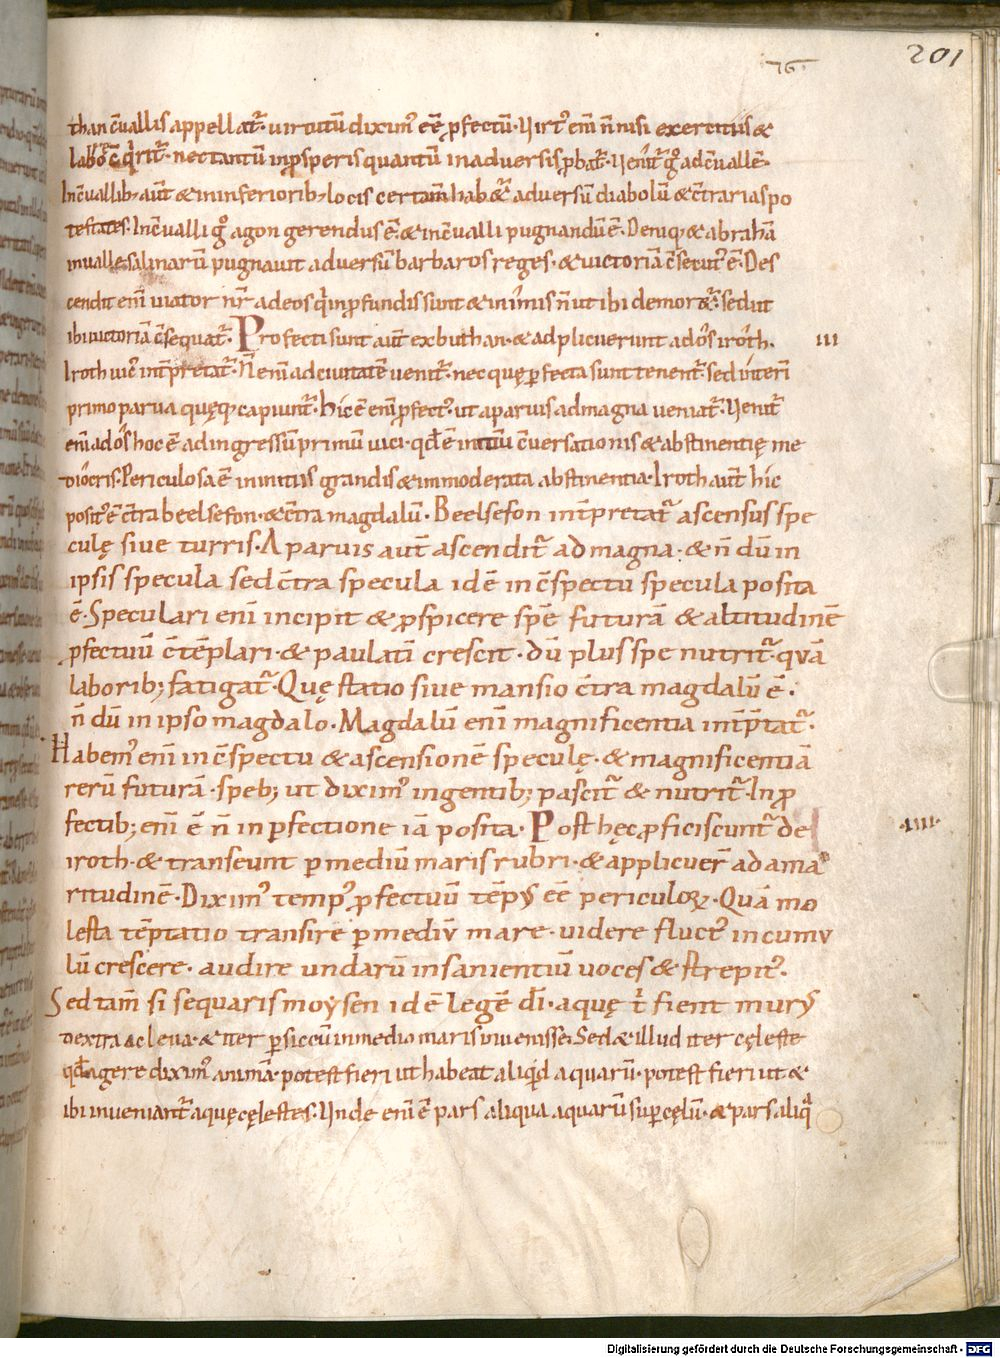 201
76
than c̄uallis appellat᷑. uirtutū diximꝰ eē ꝓfectū. Uirtꝰ em̄ n̄ nisi exercitiis &
labore q̇rit᷑. nec tantū in ꝓsperis quantū in aduersis ꝓbat᷑. Uenit᷑ gͦ ad c̄uallē.
In c̄uallibꝫ aut̄ & in inferioribꝫ locis certam̄ habet᷑ aduersū diabolū & c̄trarias po
testates. In c̄ualli gͦ agon gerendus ē. & in c̄ualli pugnandū ē. Deniqꝫ & abrahā
in ualle salinarū pugnauit aduersū barbaros reges. & uictoriā c̄secutꝰ ē. Des
cendit eni uiator nr̄ ad eos q̇ in ꝓfundis sunt & in imis n̄ ut ibi demoret᷑. sed ut
ibi uictoriā c̄sequat᷑. Profecti sunt aut̄ ex buthan. & adplicuerunt ad os iroth.
III
Iroth uicꝰ int̄pretat᷑. N̄ eni ad ciuitatē uenit᷑. nec quę ꝑfecta sunt tenent᷑. sed interī
primo parua quęqꝫ capiunt᷑. hic ē eni ꝓfectꝰ. ut a paruis ad magna ueniat᷑. Uenit᷑
eni ad os hoc ē ad ingressū primū uici. qđ ē initiū c̄uersationis & abstinentię me
diocris. Periculosa ē in initiis grandis & immoderata abstinentia. Iroth aut̄ hic
positꝰ ē c̄tra beelsefon. & c̄tra magdalū. Beelsefon int̄pretat᷑ ascensus spe
culę siue turris. A paruis aut̄ ascendit᷑ ad magna. & n̄ dū in
ipsis specula sed c̄tra specula id ē in c̄spectu specula posita
ē. Speculari eni incipit & ꝓspicere spē futurā & altitudinē
ꝓfectuū c̄tēplari. & paulatī crescit. dū plus spe nutrit᷑ quā
laboribꝫ fatigat᷑. Quę statio siue mansio c̄tra magdalū ē.
n̄ dū in ipso magdalo. Magdalū eni magnificentia int̄ptat᷑.
Habemꝰ eni in c̄spectu & ascensionē speculę. & magnificentiā
rerū futurā. spebꝫ ut diximꝰ ingentibꝫ pascit᷑ & nutrit᷑. In ꝓ
fectibꝫ eni ē n̄ in ꝑfectione iā posita. Post hęc ꝓficiscunt᷑ de
IIII
iroth. & transeunt ꝑ mediū maris rubri. & applicuer̄ ad ama
ritudinē. Diximꝰ tempꝰ ꝓfectuū tēpus eē periculoꝝ. Quā mo
lesta tēptatio transire ꝑ mediū mare. uidere fluctꝰ in cumu
lū crescere. audire undarū insanientiū uoces & strepitꝰ.
Sed tam̄ si sequaris moysen id ē legē dī. aquę t̄ fient mur9
dextra ac leua. & iter ꝑ siccū in medio maris inuenisse. Sed & illud iter cęleste
qđ agere diximꝰ animā. potest fieri ut habeat aliqid aquarū. potest fieri ut &
ibi inueniant᷑ aquę cęlestes. Unde eni ē pars aliqua aquarū suꝑ cęlū. & pars aliq̇
Digitalisierung gefördert durch die Deutsche Forschungsgemeinschaft - DFG